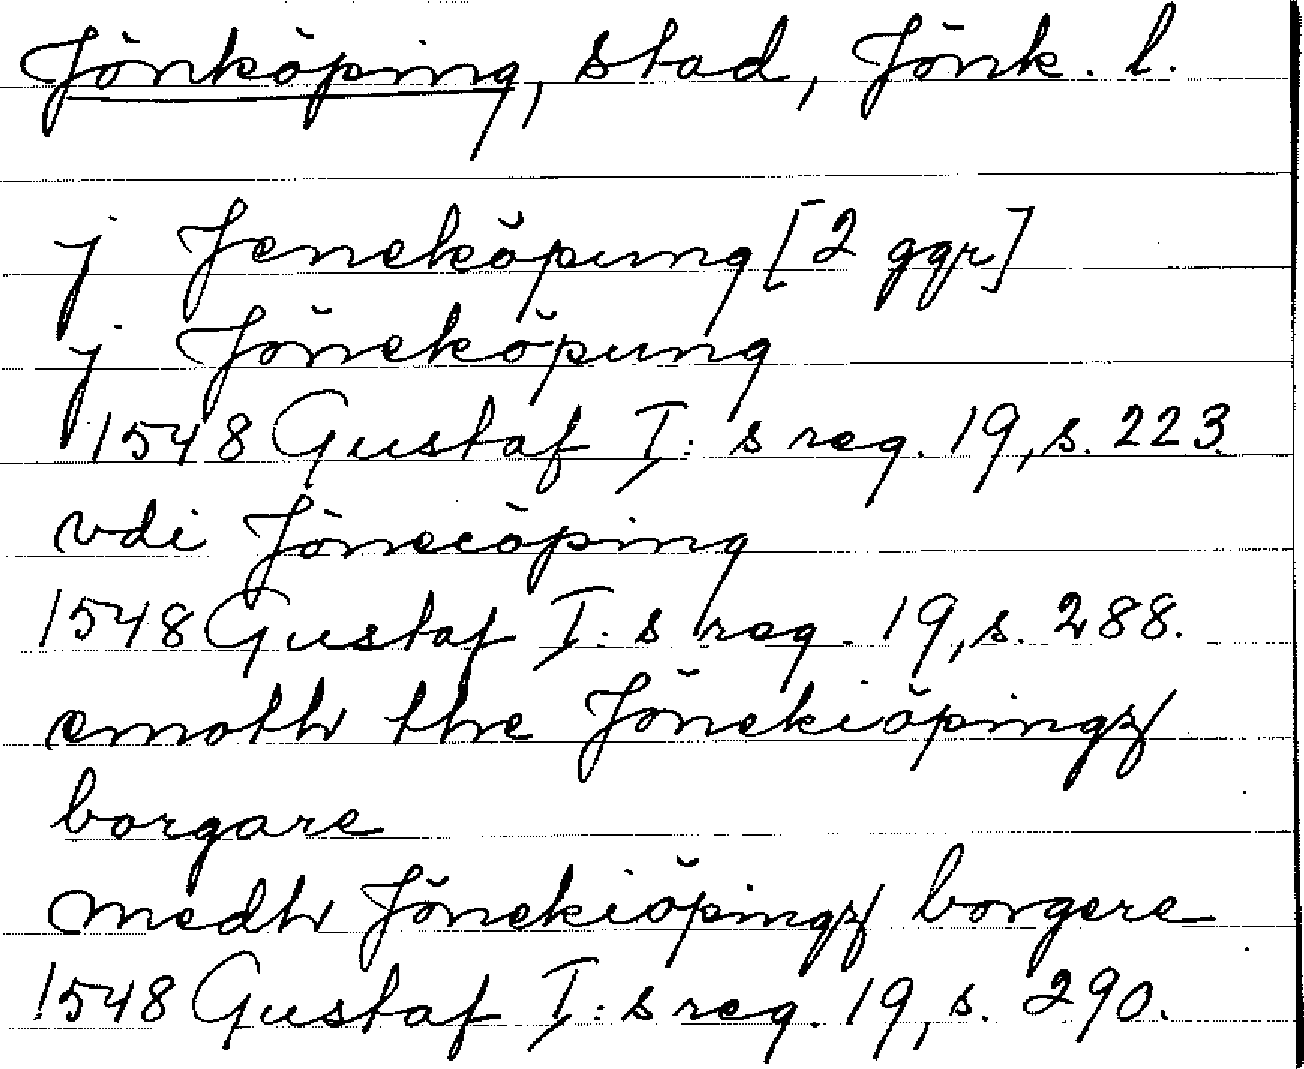 Jönköping, stad, Jönk. l.
j Jeneköpung [2 ggr]
j Jöneköpung
1548 Gustaf I: s reg. 19, s. 223.
vdi Jöneiöping
1548 Gustaf I: s reg. 19, s. 288.
emoth the Jönekiöpingz
borgare
medh Jönekiöpingz borgere
1548 Gustaf I: s reg. 19, s. 290.